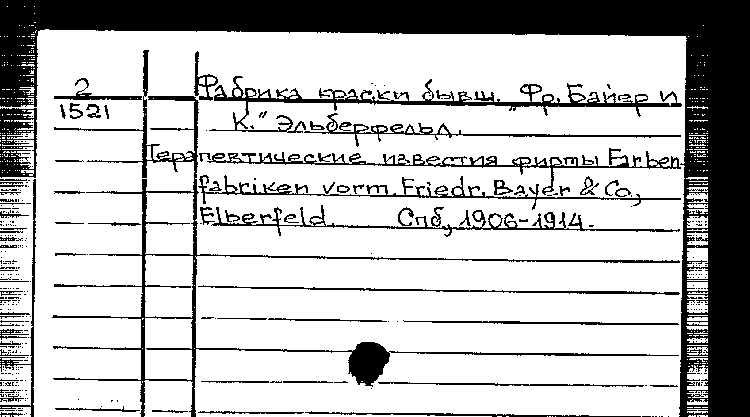 2
1521
Фабрика краски бывш. „Фр. Байер и
К." Эльберфельд.
Терапевтические известия фирмы Farben
fabriken vorm. Friedr. Bayer & Co,
Elberfeld. Спб, 1906-1914.